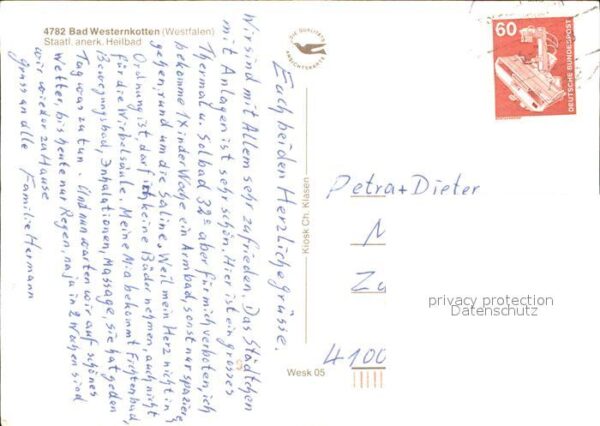 4782 Bad Westernkotten (Westfalen)
Staatl. anerk. Heilbad
DIE QUALITÄTS
ANSICHTSKARTE
60
DEUTSCHE BUNDESPOST
Euch beiden Herzliche grüsse.
Wir sind mit Allem sehr zufrieden. Das Städtchen
mit Anlagen ist sehr schön. Hier ist ein grosses
Thermal u. Solbad 32° aber für mich verboten, ich
bekomme 1X in der Woche ein Armbad, sonst nur spazieren
gehen, rund um die Saline. Weil mein Herz nicht in
Ordnung ist, darf ich keine Bäder nehmen, auch nicht
für die Wirbelsäule. Meine Mia bekommt Fichtenbad,
Bewegungsbad, Inhalationen, Massage, sie hat jeden
Tag was zu tun. Und nun warten wir auf schönes
Wetter, bis heute nur Regen, na ja in 2 Wochen sind
wir wieder zu Hause
Gruss an alle Familie Hermann
Kiosk Ch. Klasen
Wesk 05
Petra + Dieter
4100
privacy protection
Datenschutz